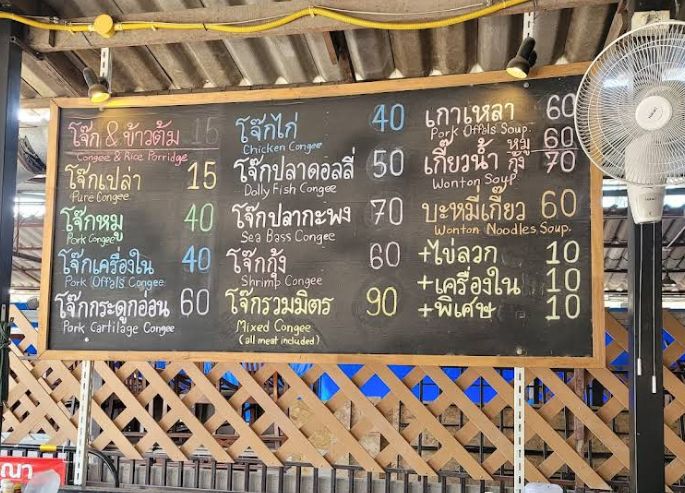 โจ๊ก & ข้าวต้ม 15
Congee & Rice Porridge
โจ๊กเปล่า 15
Pure Congee
โจ๊กหมู 40
Pork Congee
โจ๊กเครื่องใน 40
Pork Offals Congee
โจ๊กกระดูกอ่อน 60
Pork Cartilage Congee
โจ๊กไก่ 40
Chicken Congee
โจ๊กปลาดอลลี่ 50
Dolly Fish Congee
โจ๊กปลากะพง 70
Sea Bass Congee
โจ๊กกุ้ง 60
Shrimp Congee
โจ๊กรวมมิตร 90
Mixed Congee
(all meat included)
เกาเหลา 60
Pork Offals Soup
เกี๊ยวน้ำ หมู 60
กุ้ง 70
Wonton Soup
บะหมี่เกี๊ยว 60
Wonton Noodles Soup
+ไข่ลวก 10
+เครื่องใน 10
+พิเศษ 10
ณา